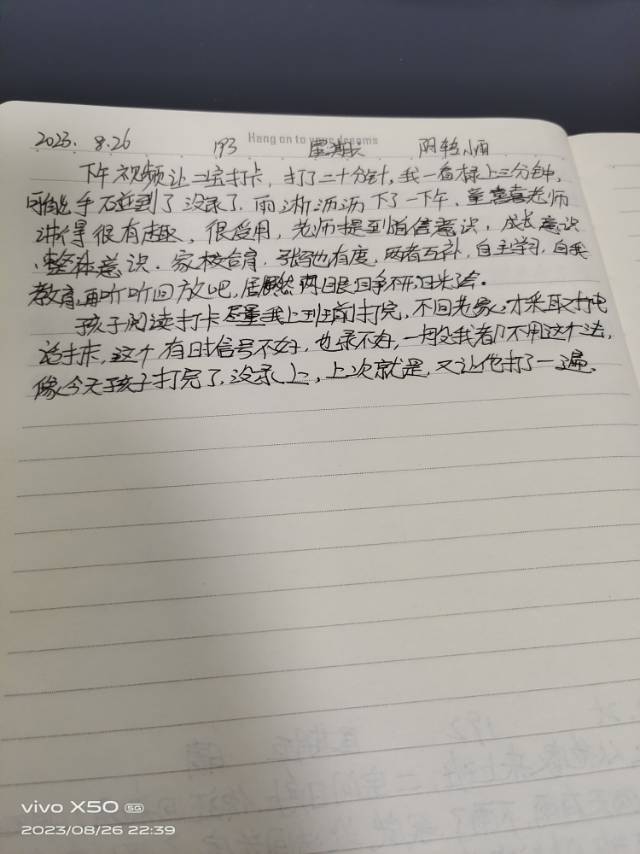 Hang on to your dreams
2023. 8.26 193 星期六 阴转小雨
下午视频让二宝打卡，打了二十分针，我一看标上三分钟，
可能手碰到了没录了，雨淅沥沥下了一下午，董喜喜老师
讲得很有趣，很受用，老师提到自信意识，成长意识
，整体意识，家校合育，张弛有度，两者互补，自主学习，自我
教育，再听听回放吧，居然两眼睁不开
孩子阅读打卡尽量我上班前打完，不回老家，才采取打电
话打卡，这个有时信号不好，也录不好，一般我都不用这个法，
像今天孩子打完了，没录上，上次就是，又让他打了一遍。
vivo X50 5G
2023/08/26 22:39